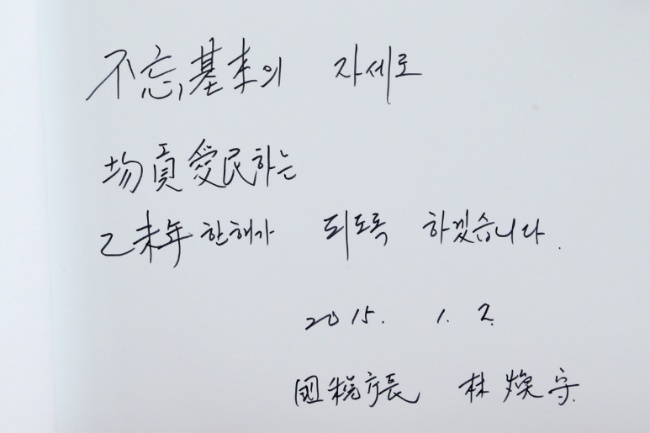 不忘基本의 자세로
均貢愛民하는
乙未年 한해가 되도록 하겠습니다.
2015. 1. 2.
国稅庁長 林煥守